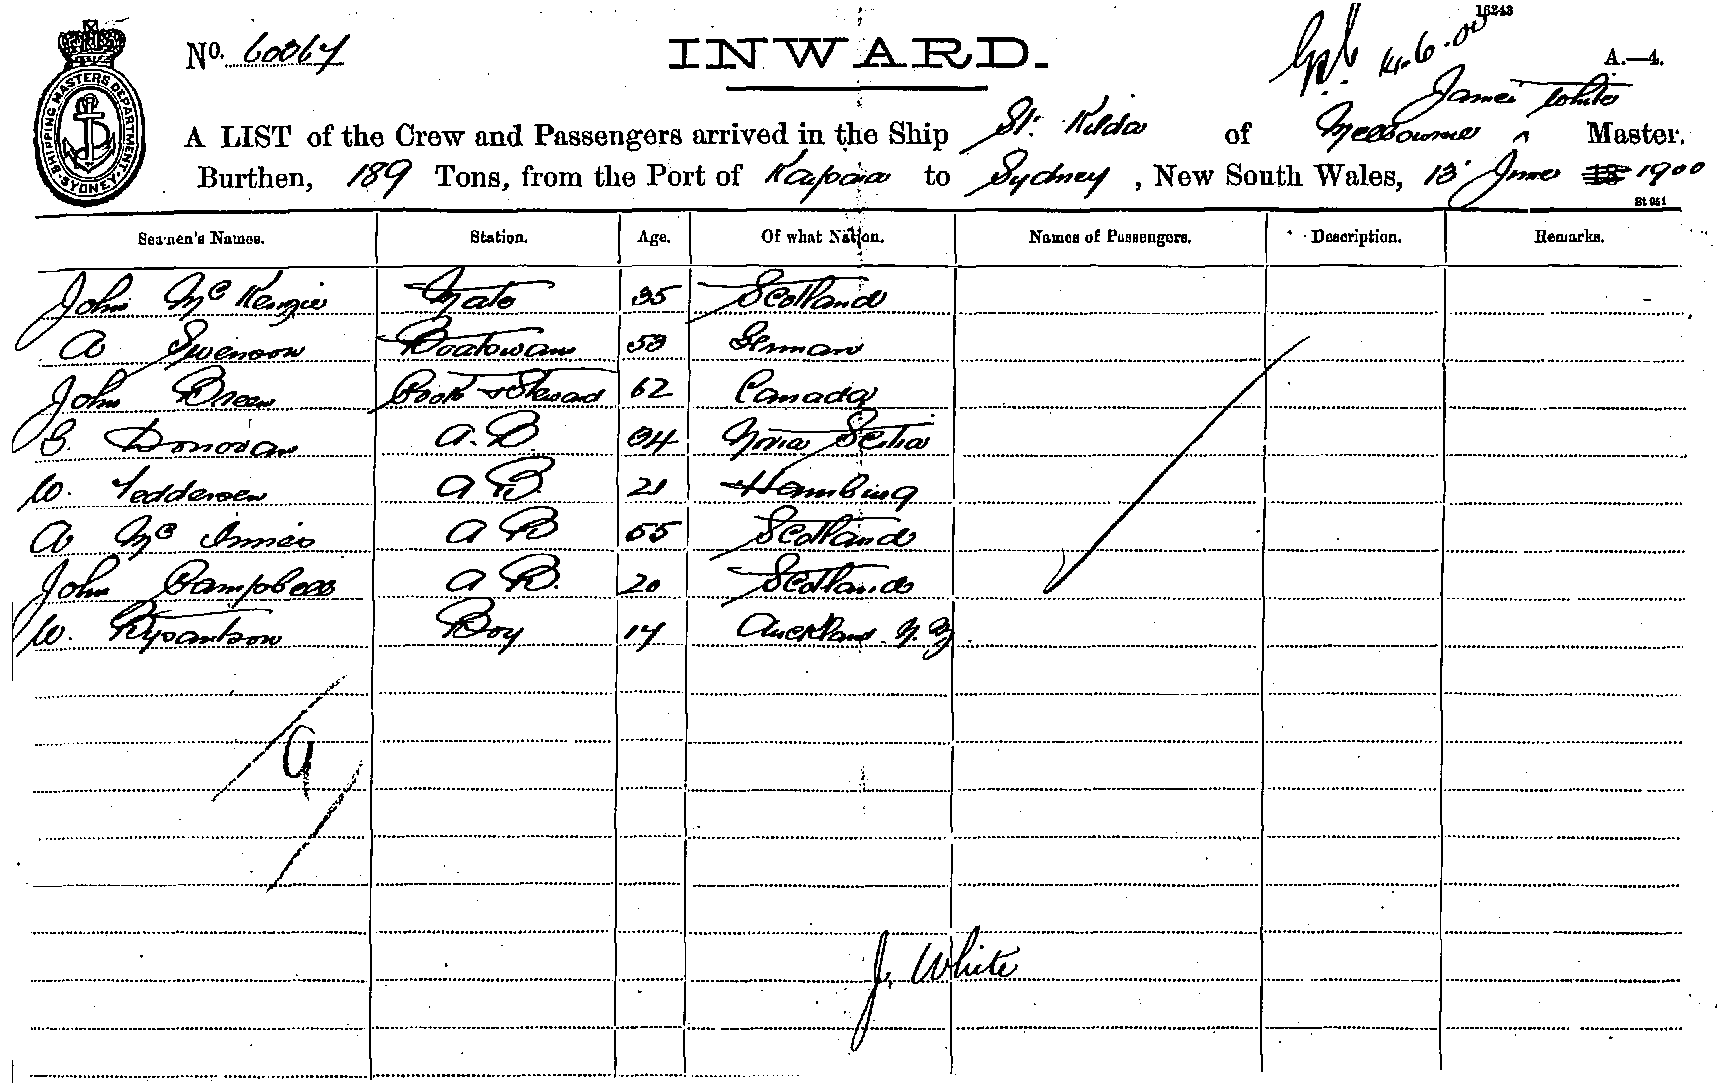 16243
No. 60067 INWARD. 14.6.00 A.—4.
SHIPPING MASTERS DEPARTMENT SYDNEY
James White
A LIST of the Crew and Passengers arrived in the Ship St. Kilda of Melbourne ^ Master.
Burthen, 189 Tons, from the Port of Kaipara to Sydney, New South Wales, 13 June 1900
St 951
Seamen's Names. Station. Age. Of what Nation. Names of Passengers. Description. Remarks.
John McKenzie Mate 35 Scotland
A Swenson Boatswain 53 German
John Breen Cook & Steward 62 Canada
G. Donovan A.B. 34 Nova Scotia
W. Feddersen A B. 21 Hamburg
A McInnis A B 55 Scotland
John Campbell A B. 20 Scotland
W. Boy 14 Auckland N.Z.
9
J. White